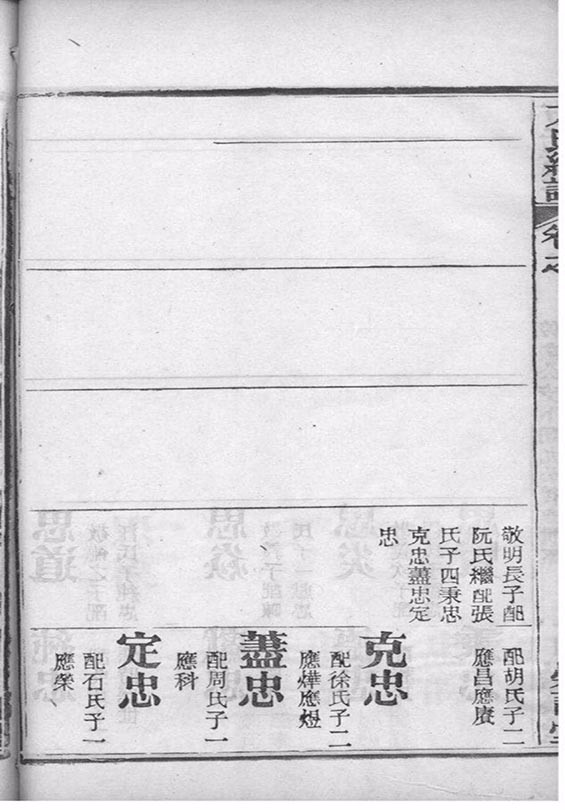 敬明長子配
阮氏繼配張
氏子四秉忠
克忠藎忠定
忠
配胡氏子二
應昌應賡
克忠
配徐氏子二
應燁應煜
藎忠
配周氏子一
應科
定忠
配石氏子一
應榮